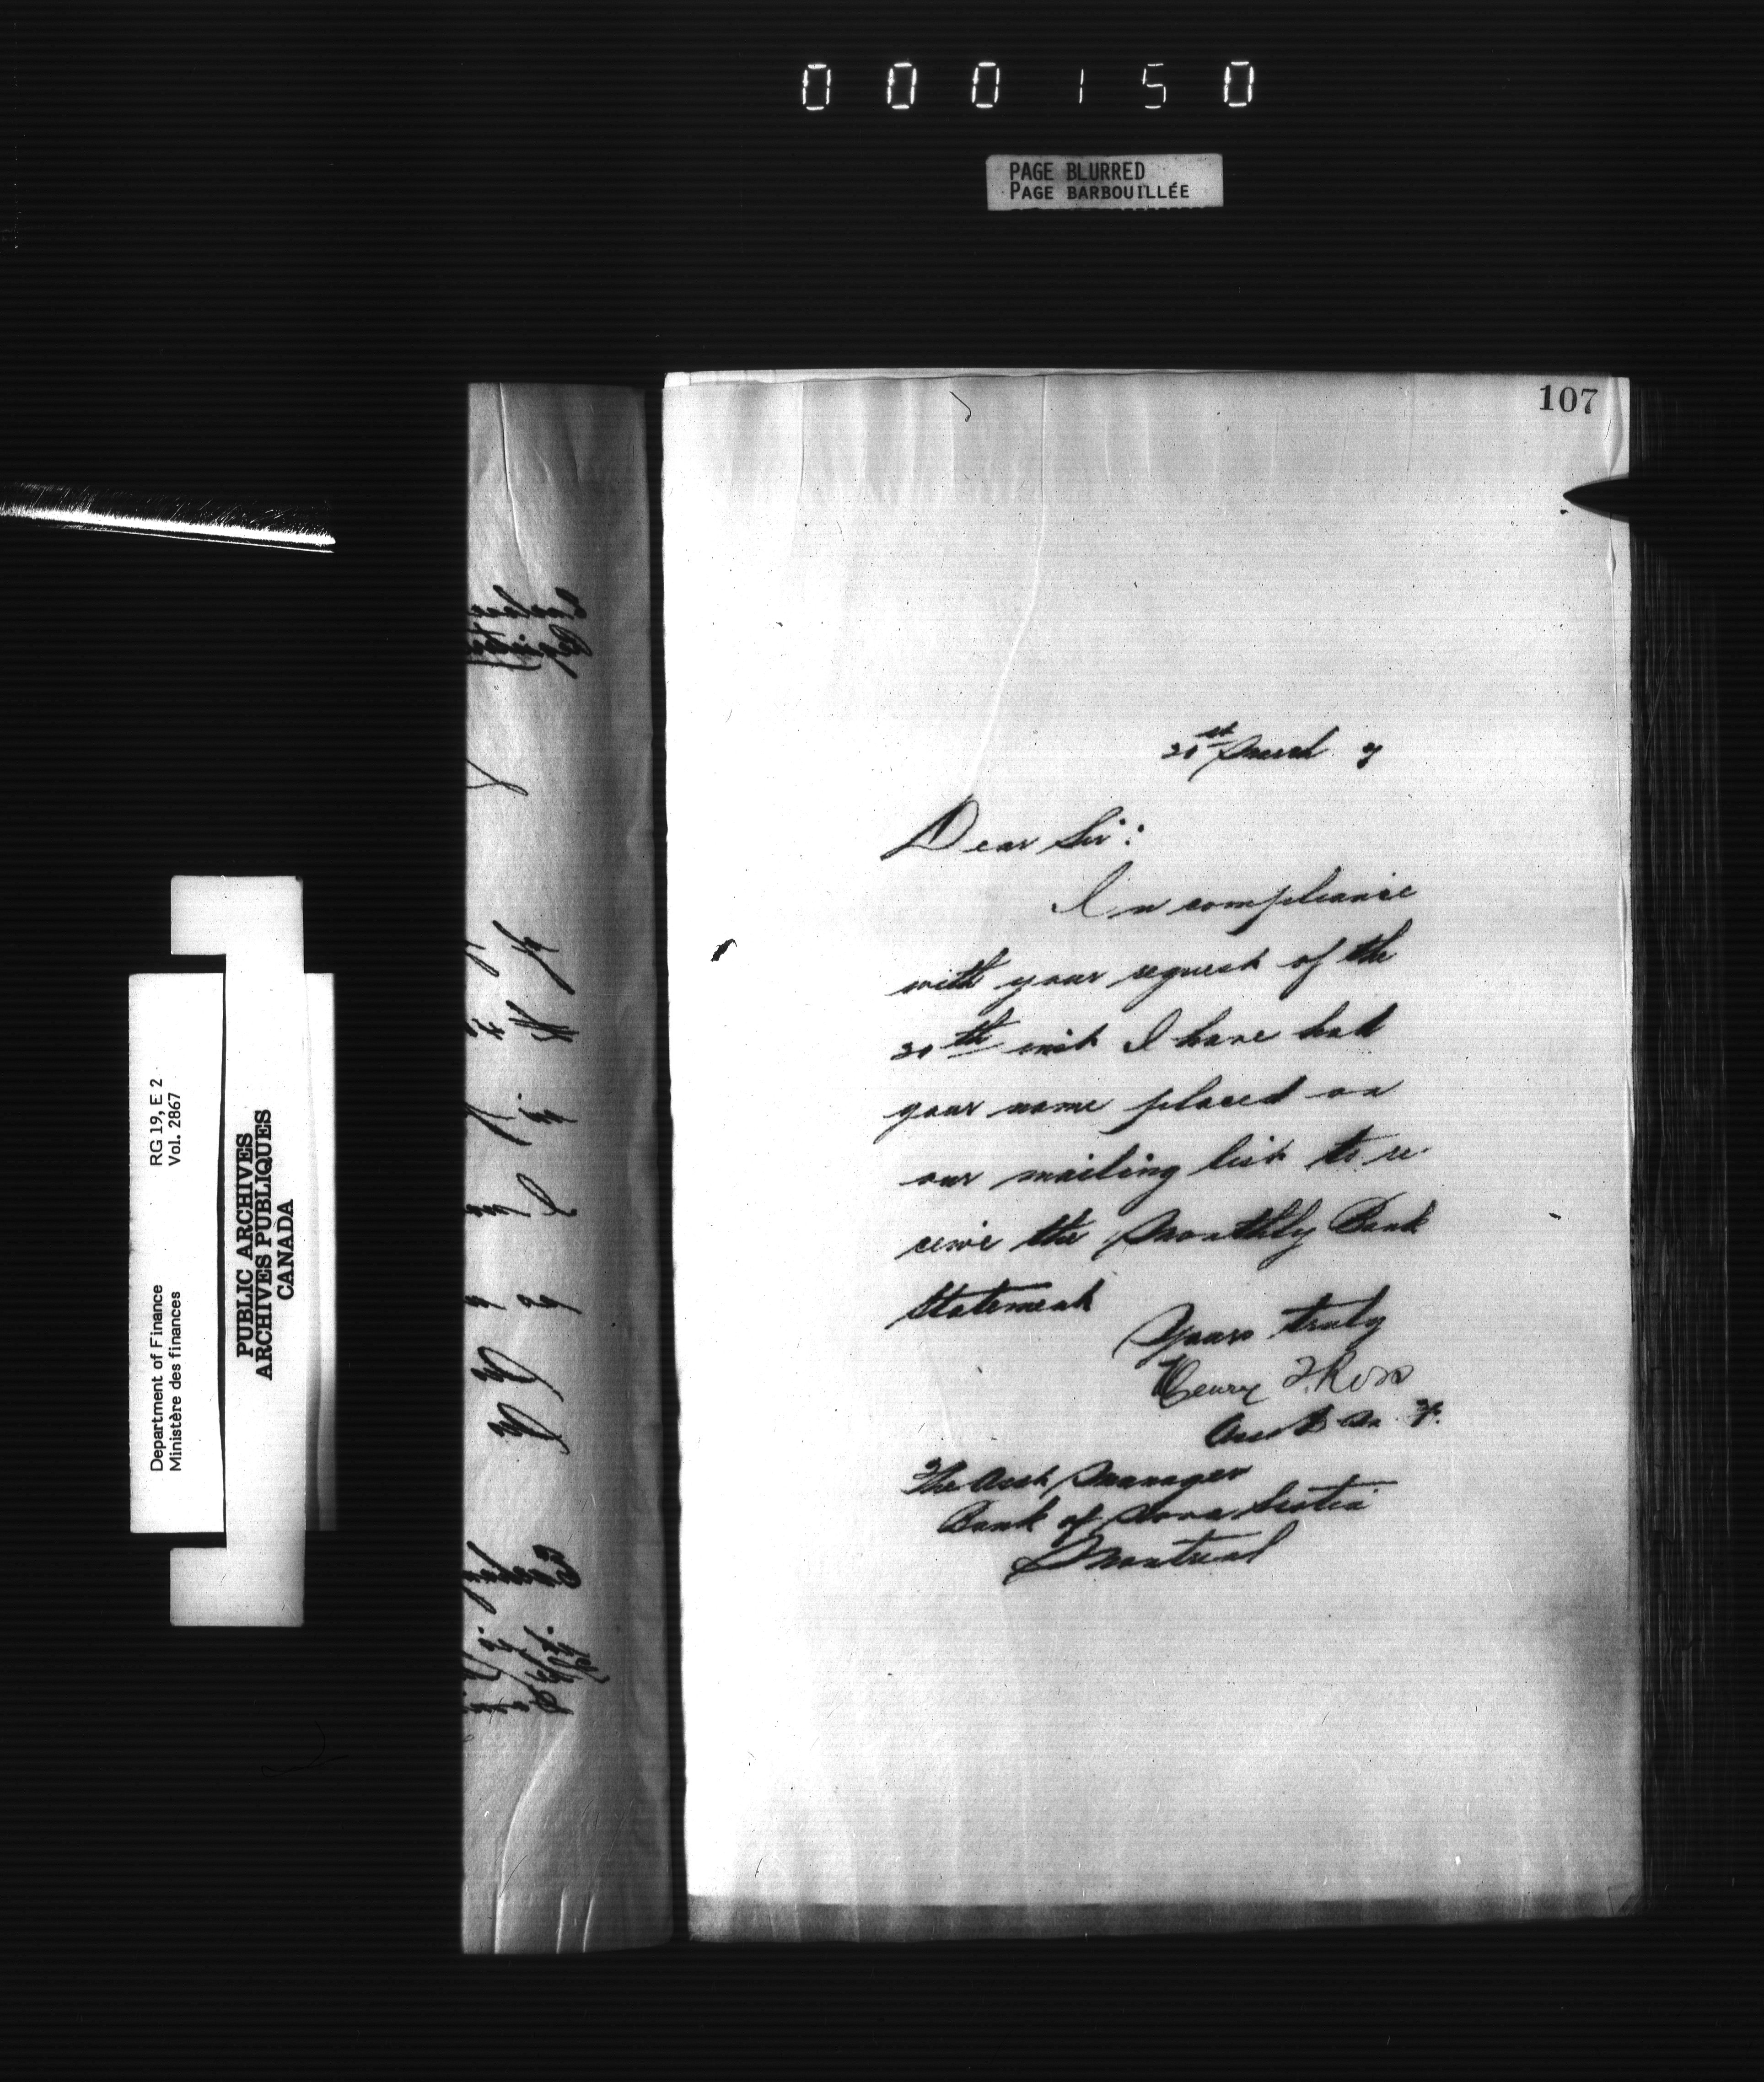 000150
PAGE BLURRED
PAGE BARBOUILLÉE
107
21st March 9
Dear Sir:
In compliance
with your request of the
20th inst I have had
your name placed on
our mailing list to re-
ceive the Monthly Bank
Statement
Yours truly
Henry T. Ross
The Asst Manager
Bank of Nova Scotia
Montreal
Department of Finance RG 19, E 2
Ministère des finances Vol. 2867
PUBLIC ARCHIVES
ARCHIVES PUBLIQUES
CANADA